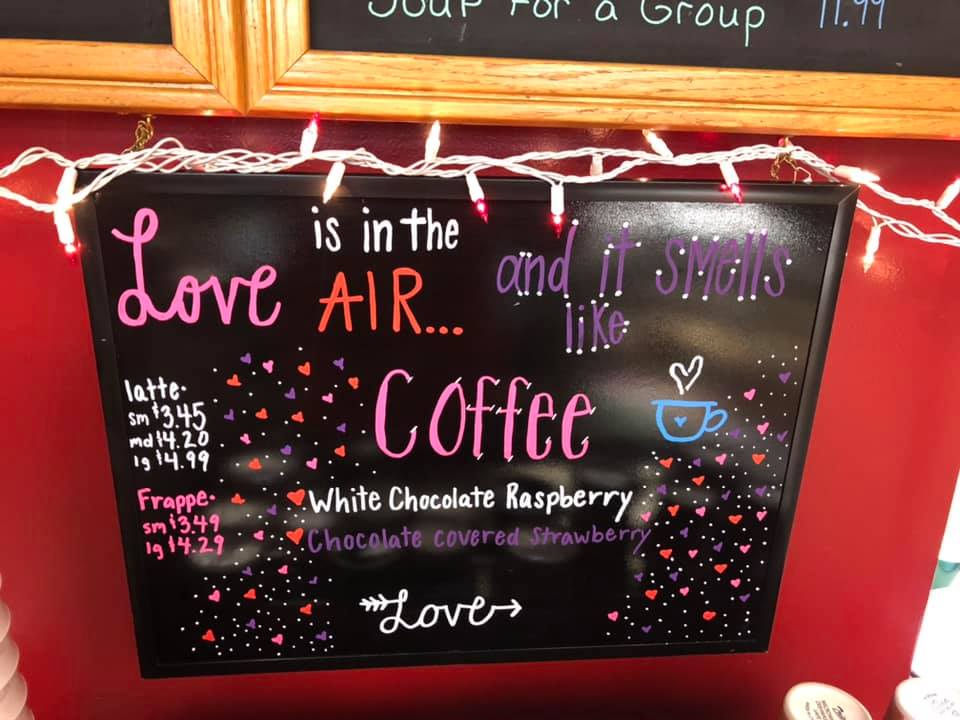 Soup For a Group 11.99
Love is in the AIR...
and it smells
like
Coffee
latte·
sm $3.45
md $4.20
lg $4.99
Frappe·
sm $3.49
lg $4.29
White Chocolate Raspberry
Chocolate covered Strawberry
Love